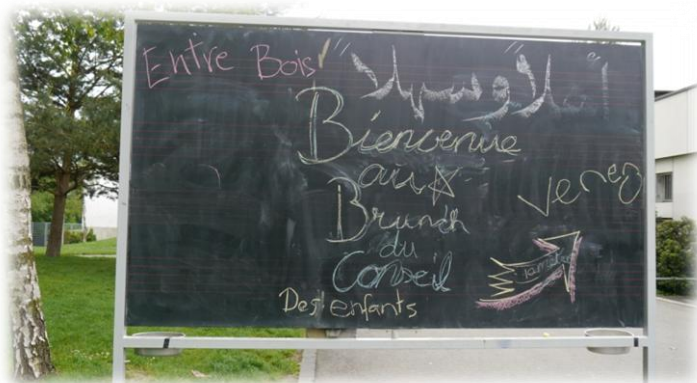 Entre Bois
أهلاً و سهلاً
Bienvenue
au
Brunch
du
Conseil
Des enfants
Venez